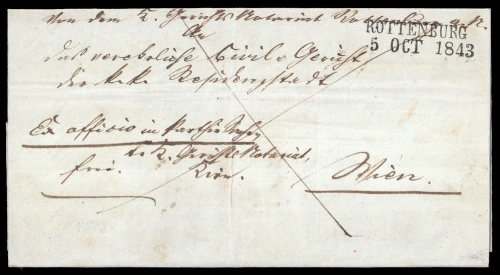 Von dem K. Gerichts Notariat Rottenburg a/N.
An
ROTTENBURG
5 OCT 1843
das verehrliche Civil-Gericht
der k.k. Residenzstadt
Ex officio in Parthie Sachen
K. Gerichts Notariat,
frei.
Wien.